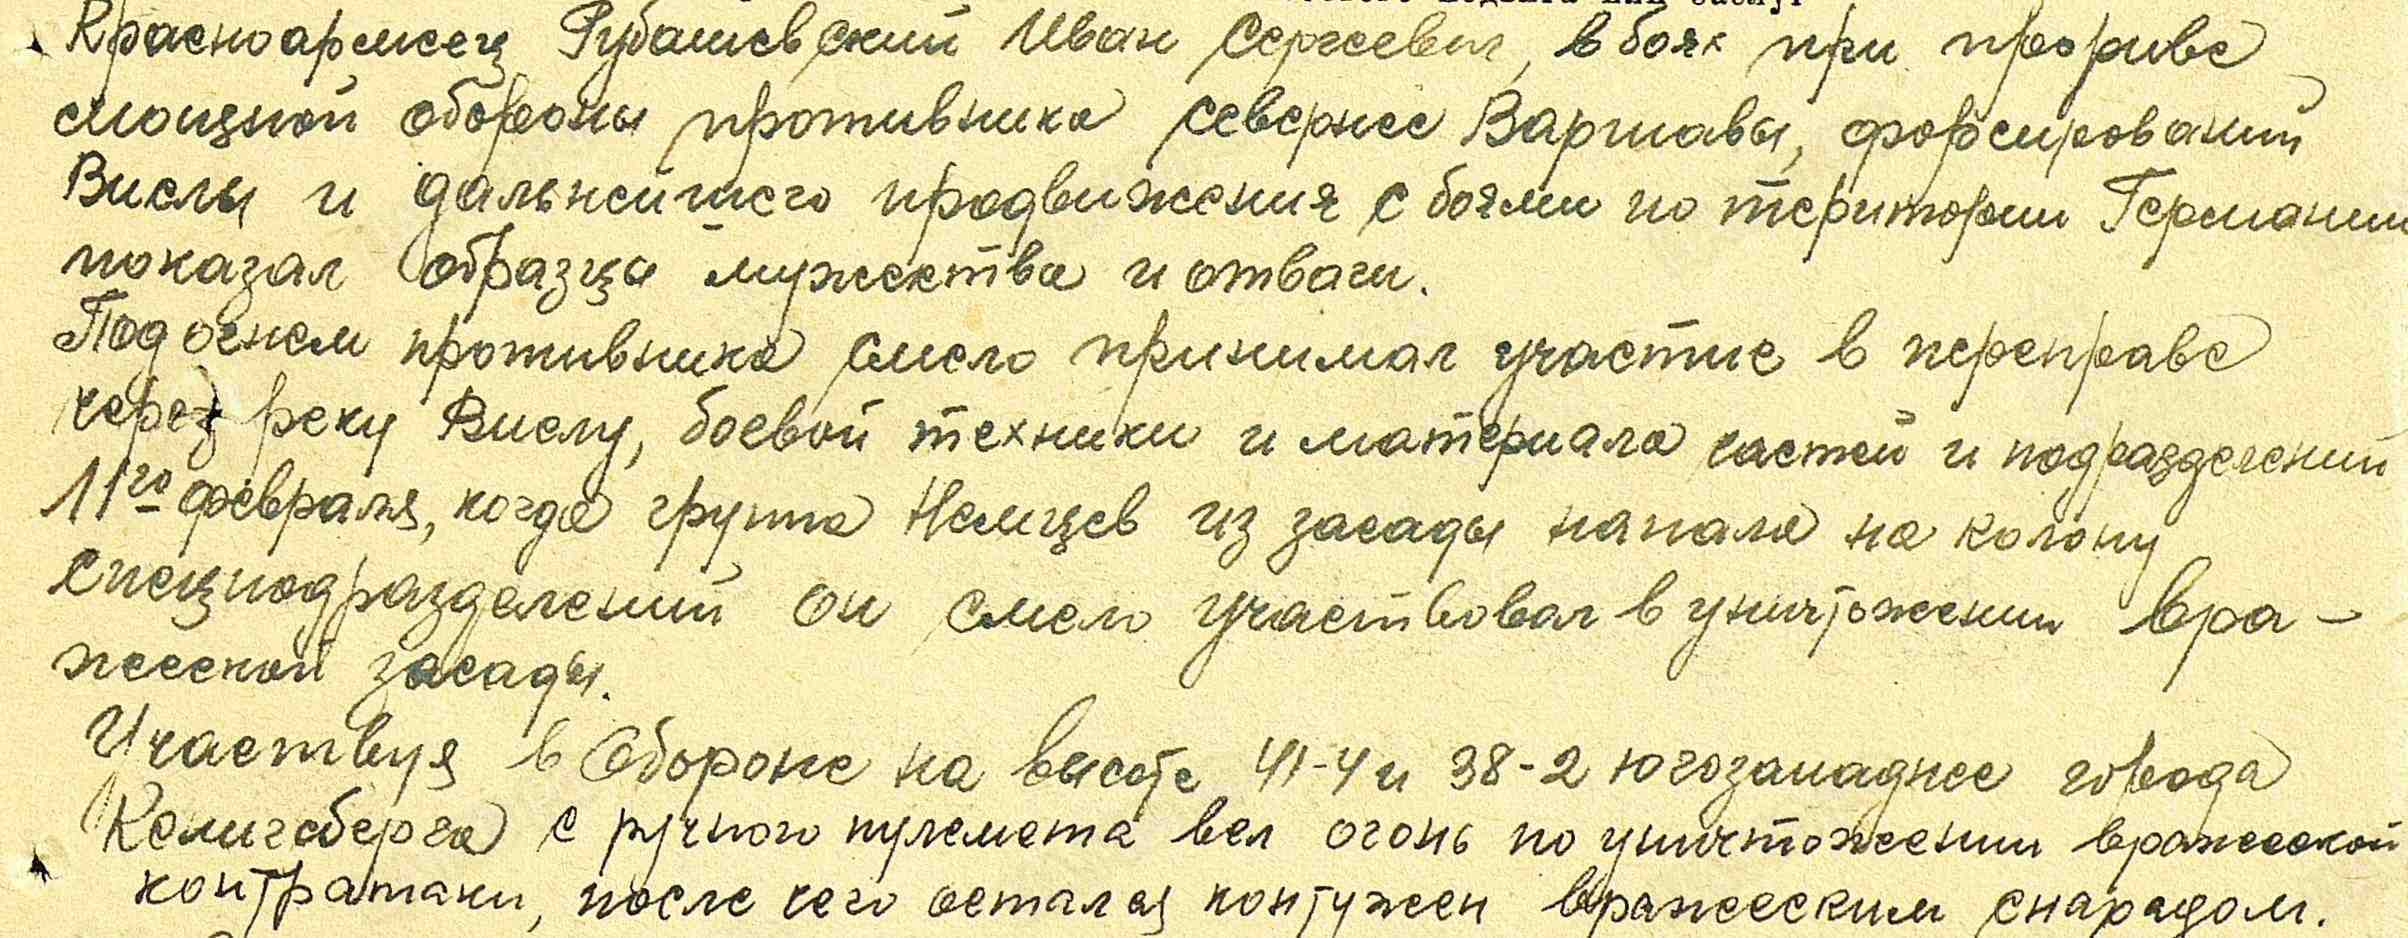 Красноармеец Рубашевский Иван Сергеевич, в боях при прорыве
смощной обороны противника севернее Варшавы, форсирований
Вислы и дальнейшего продвижения с боями по територии Германии
показал образцы мужества и отваги.
Под огнем противника смело принимал участие в переправе
через реку Вислу, боевой техники и материала частей и подразделений
11го февраля, когда группа Немцев из засады напала на колону
спецподразделений он смело участвовал в уничтожении вра-
жеской засады.
Участвуя в Обороне на высоте 41-4 и 38-2 югозападнее города
Кенигсберга с ручного пулемета вел огонь по уничтожении вражеской
контратаки, после чего остался контужен вражеским снарядом.